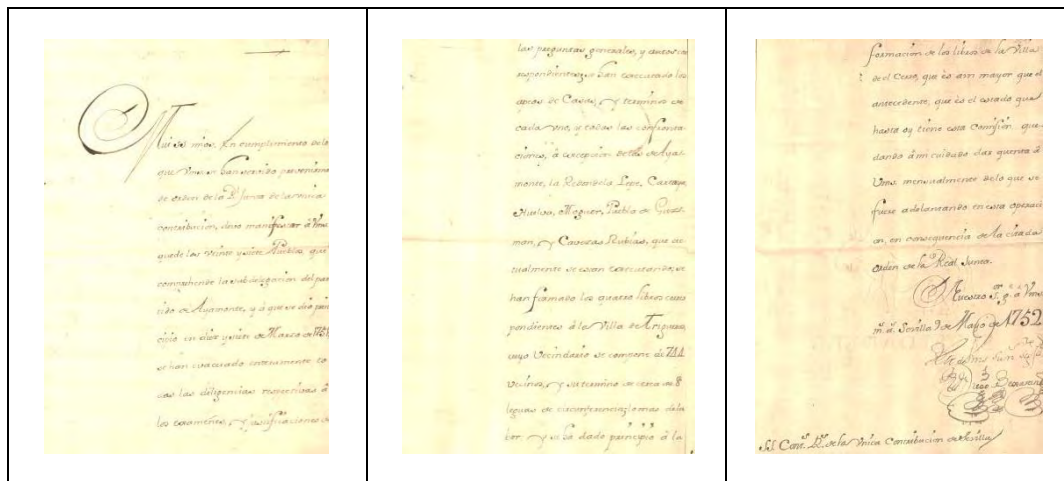 Mui SS mios. En cumplimiento de lo
que Vms se han servido prevenirme
de orden de la Rl Junta de la unica
contribucion, devo manifestar à Vms
que de los veinte y siete Pueblos que
comprehende la subdelegacion del par
tido de Ayamonte, y à que se diò prin
cipio en diez y siete de Marzo de 1751,
se han evacuado enteramente to
das las diligencias respectivas à
los examenes, y justificaciones de
las preguntas generales, y autos co
rrespondientes; se han executado los
apeos de Casas, y termino de
cada uno, y todas las confronta
ciones, à excepcion de los de Aya
monte, la Redondela, Lepe, Cartaya,
Huelva, Moguer, Puebla de Guzman
man, y Cavezas Rubias, que ac
tualmente se estan executando; se
han formado los quatro libros corres
pondientes à la Villa de Trigueros
cuyo Vecindario se compone de 744
vecinos, y su termino de cerca de 8
leguas de circunferencia, lo mas de la
bor, y se ha dado principio à la
formacion de los libros de la Villa
de el Cerro, que es aun mayor que el
antecedente, que es el estado que
hasta oy tiene esta Comision, que
dando à mi cuidado dar quenta à
Vms. mensualmente de lo que se
fuere adelantando en esta operaci
on, en consequencia de la citada
orden de la Real Junta.
Nuestro Sr. g. à Vms
ms. as. Sevilla 9 de Mayo de 1752
SS. Cont. de la Vnica Contribucion de Sevilla